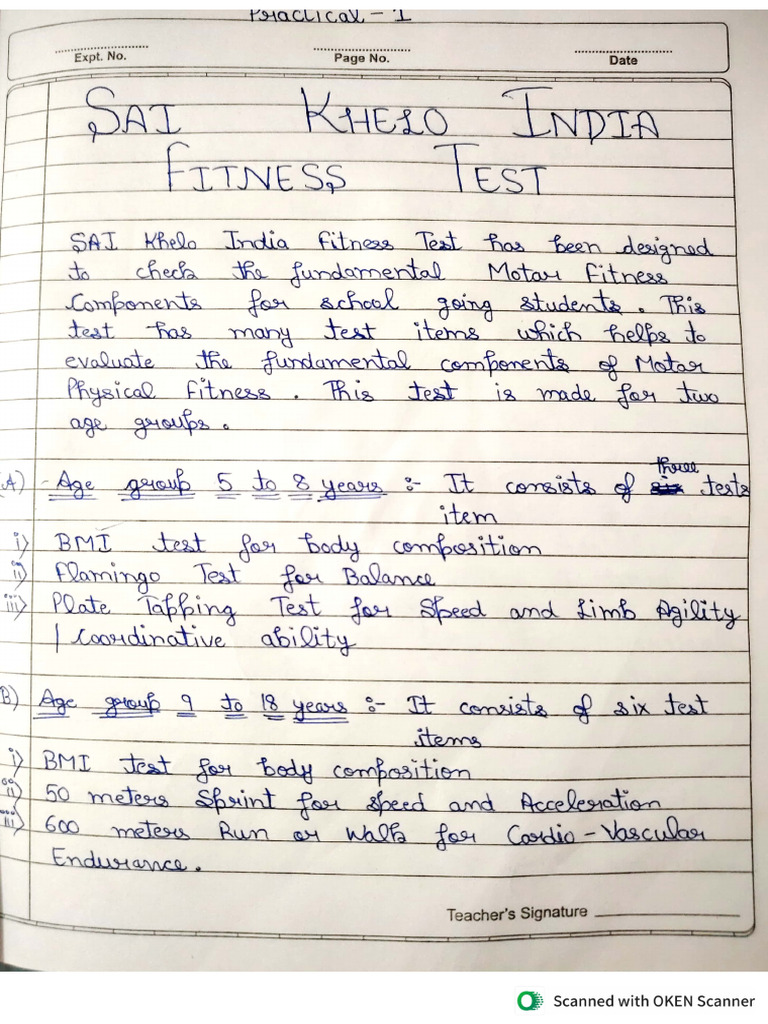 Practical - 1
Expt. No.
Page No.
Date
SAI KHELO INDIA
FITNESS TEST
SAI Khelo India Fitness Test has been designed
to check the fundamental Motar Fitness
Components for school going students. This
test has many test items which helps to
evaluate the fundamental components of Motar
Physical Fitness. This test is made for two
age groups.
A) Age group 5 to 8 years :- It consists of three tests
item
i) BMI test for body composition
ii) Flamingo Test for Balance
iii) Plate Tapping Test for Speed and Limb Agility
/ Coordinative ability
B) Age group 9 to 18 years :- It consists of six test
items
i) BMI test for body composition
ii) 50 meters Sprint for speed and Acceleration
iii) 600 meters Run or Walk for Cardio-Vascular
Endurance.
Teacher's Signature
Scanned with OKEN Scanner